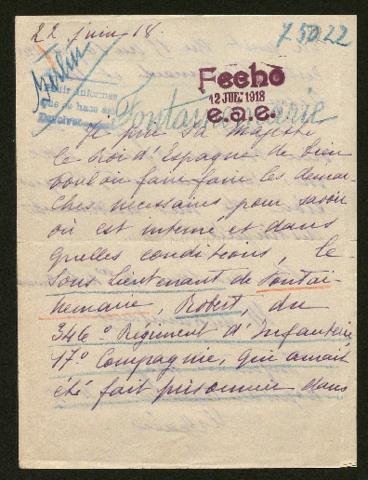 22 juin 18.
75022
Berlin
Pedir informes
que se hace así
Fecho
12 JUL. 1918
e.a.e.
Fontainemarie
Je prie Sa Majesté
le Roi d'Espagne de bien
vouloir faire faire les démar-
ches nécessaires pour savoir
où est interné et dans
quelles conditions, le
Sous Lieutenant de Fontai-
nemarie, Robert, du
346º Régiment d'Infanterie
17º Compagnie, qui aurait
été fait prisonnier dans